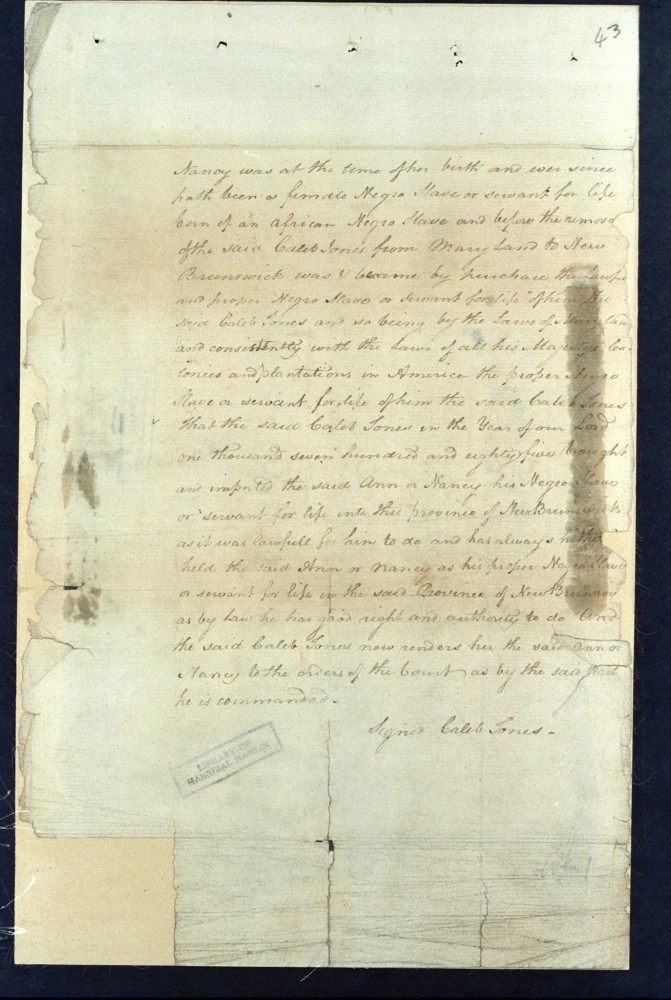 43
Nancy was at the time of her birth and ever since
hath been a female Negro Slave or servant for life
born of an african Negro Slave and before the removal
of the said Caleb Jones from Maryland to New
Brunswick was & became by purchase the Lawful
and proper Negro Slave or servant for life of him the
said Caleb Jones and so being by the Laws of Maryland
and consistently with the Laws of all his Majestys Co
lonies and plantations in America the proper Negro
Slave or servant for life of him the said Caleb Jones
that the said Caleb Jones in the Year of our Lord
one thousand seven hundred and eighty five brought
and imported the said Ann or Nancy his Negro Slave
or servant for life into this province of New Brunswick
as it was lawfull for him to do and has always hitherto
held the said Ann or Nancy as his proper Negro Slave
or servant for life in the said Province of New Brunswick
as by Law he has good right and authority to do And
the said Caleb Jones now renders her the said Ann or
Nancy to the orders of the Court as by the said Writ
he is commanded.
Signed Caleb Jones
LIBRARY OF